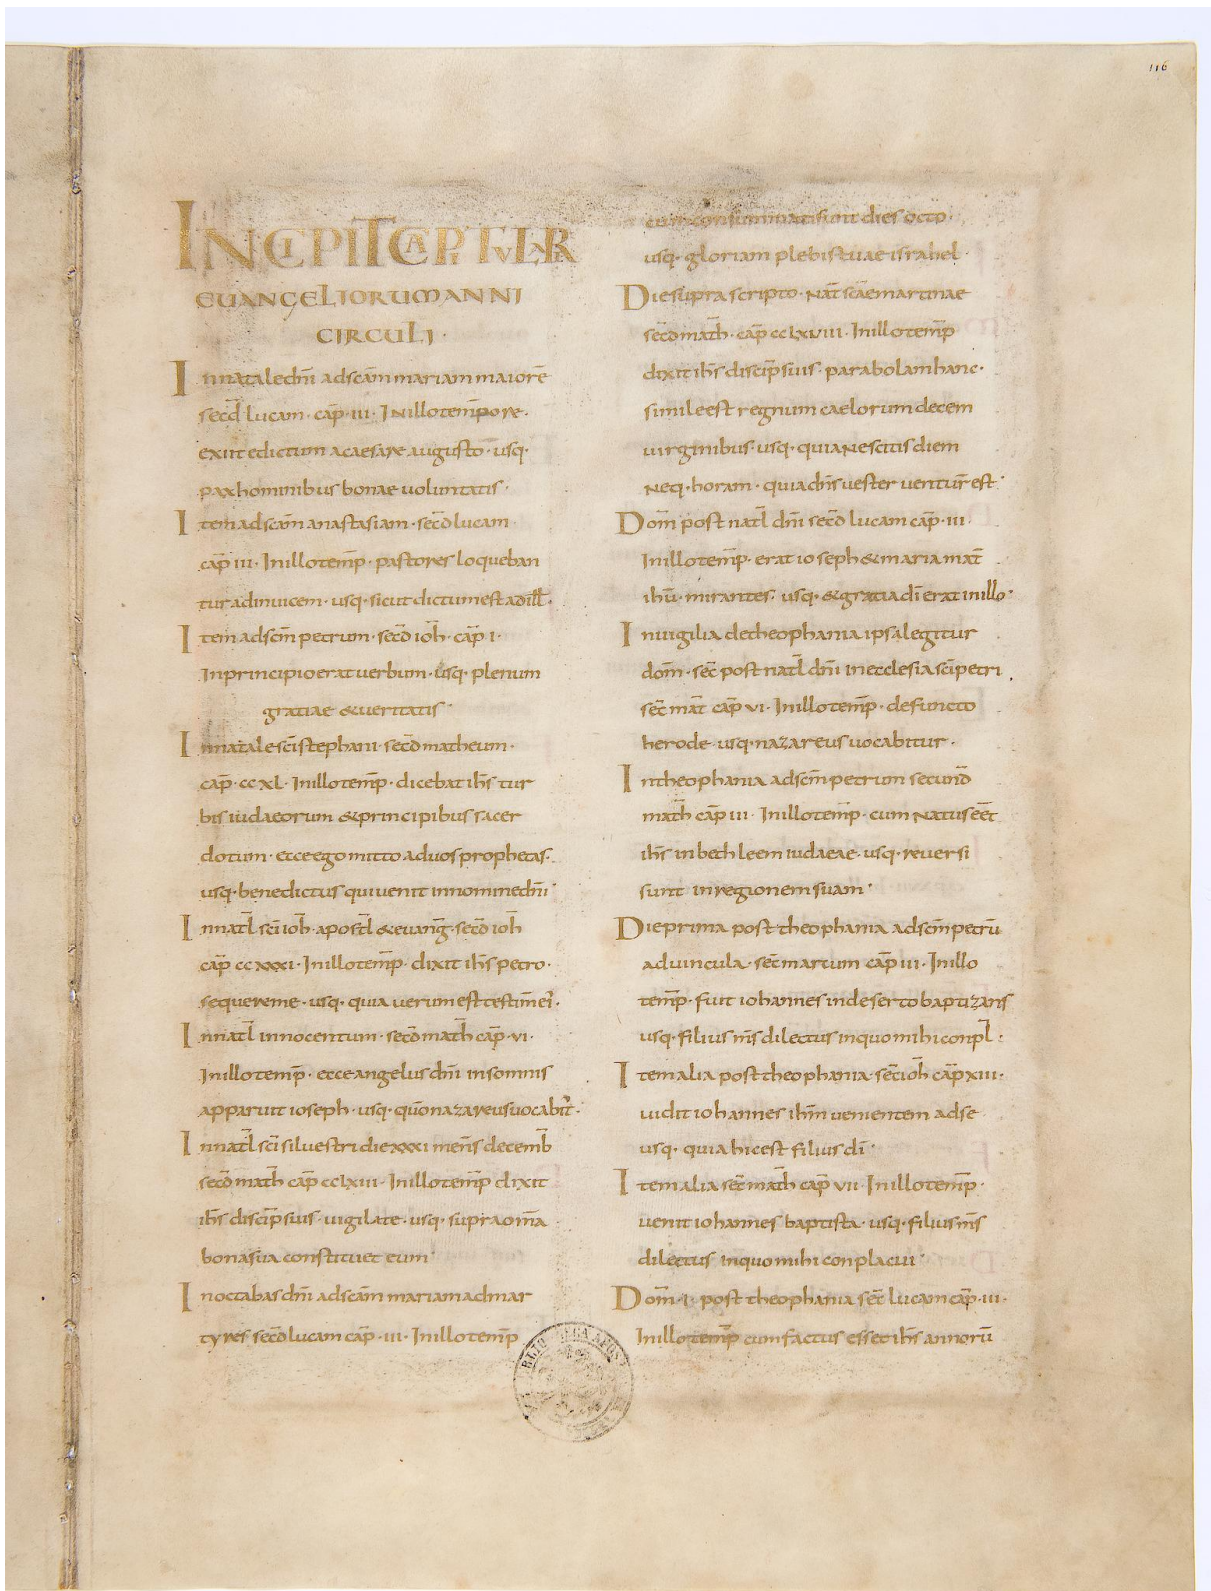 116
INCIPIT CAPITVLARE
EUANGELIORUM ANNI
CIRCULI ·
In natale dn̄i ad scām mariam maiorē
secd̄ lucam · cap̄ · iii · In illo temp̄ore ·
exiit edictum a caesare augusto · usq·
pax hominibus bonae uoluntatis ·
Item ad scām anastasiam · secd̄ lucam
cap̄ iii · In illo temp̄ · pastores loqueban
tur adinuicem · usq· sicut dictum est ad ill̄ ·
Item ad scm̄ petrum · secd̄ ioh̄ · cap̄ i ·
In principio erat uerbum · usq· plenum
gratiae & ueritatis ·
In natale sc̄i stephani · secd̄ matheum ·
cap̄ · ccxl · In illo temp̄ · dicebat ih̄s tur
bis iudaeorum & principibus sacer
dotum · ecce ego mitto ad uos prophetas ·
usq· benedictus qui uenit in nomine dn̄i ·
In natl̄ sc̄i ioh̄ · apostl̄ & euanḡ · secd̄ ioh̄
cap̄ ccxxxi · In illo temp̄ · dixit ih̄s petro ·
sequere me · usq· quia uerum est testim̄ ei ·
In natl̄ innocentum · secd̄ math̄ cap̄ · vi ·
In illo temp̄ · ecce angelus dn̄i in somnis
apparuit ioseph · usq· qūo nazareus uocabit̄ ·
In natl̄ sc̄i siluestri die xxxi men̄s decemb̄
secd̄ math̄ cap̄ cclxiii · In illo temp̄ dixit
ih̄s discip̄ suis · uigilate · usq· supra om̄a
bona sua constituet eum ·
In octabas dn̄i ad scām mariam ad mar
tyres secd̄ lucam cap̄ · iii · In illo temp̄
cum consummati sunt dies octo ·
usq· gloriam plebis tuae israhel ·
Die supra scripto · nat̄ scāe martinae
secd̄ math̄ · cap̄ cclxviii · In illo temp̄
dixit ih̄s discip̄ suis · parabolam hanc ·
simile est regnum caelorum decem
uirginibus · usq· quia nescitis diem
neq· horam · quia dn̄s uester ventur̄ est ·
Dom̄ post natl̄ dn̄i secd̄ lucam cap̄ · iii ·
In illo temp̄ · erat ioseph & maria mat̄
ihū · mirantes · usq· & gratia dī erat in illo ·
In uigilia de theophania ipsa legitur
dom̄ · sec̄ post natl̄ dn̄i in ecclesia sc̄i petri
sec̄ mat̄ cap̄ vi · In illo temp̄ · defuncto
herode · usq· nazareus uocabitur ·
In theophania ad scm̄ petrum secund̄
math̄ cap̄ iii · In illo temp̄ · cum natus eēt
ih̄s in bethleem iudaeae · usq· reuersi
sunt in regionem suam ·
Die prima post theophania ad scm̄ petrū
ad uincula · sec̄ marcum cap̄ iii · In illo
temp̄ · fuit iohannes in deserto baptizans
usq· filius m̄s dilectus in quo mihi conpl̄ ·
Item alia post theophania · sec̄ ioh̄ cap̄ xiii ·
uidit iohannes ihm̄ uenientem ad se
usq· quia hic est filius dī ·
Item alia sec̄ math̄ cap̄ vii · In illo temp̄ ·
uenit iohannes baptista · usq· filius m̄s
dilectus in quo mihi conplacui ·
Dom̄ · i · post theophania sec̄ lucam cap̄ · iii ·
In illo temp̄ cum factus esset ih̄s annorū